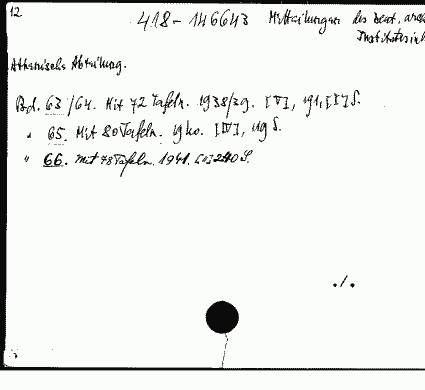 12
418-146643 Mitteilungen des Deut. arch
Institutes in
Athenische Abteilung.
Bd. 63/64. Mit 72 Tafeln. 1938/39. [V], S.
" 65. Mit 20 Tafeln. 1940. [IV], 119 S.
" 66. Mit 78 Tafeln. 1941. 240 S.
./.